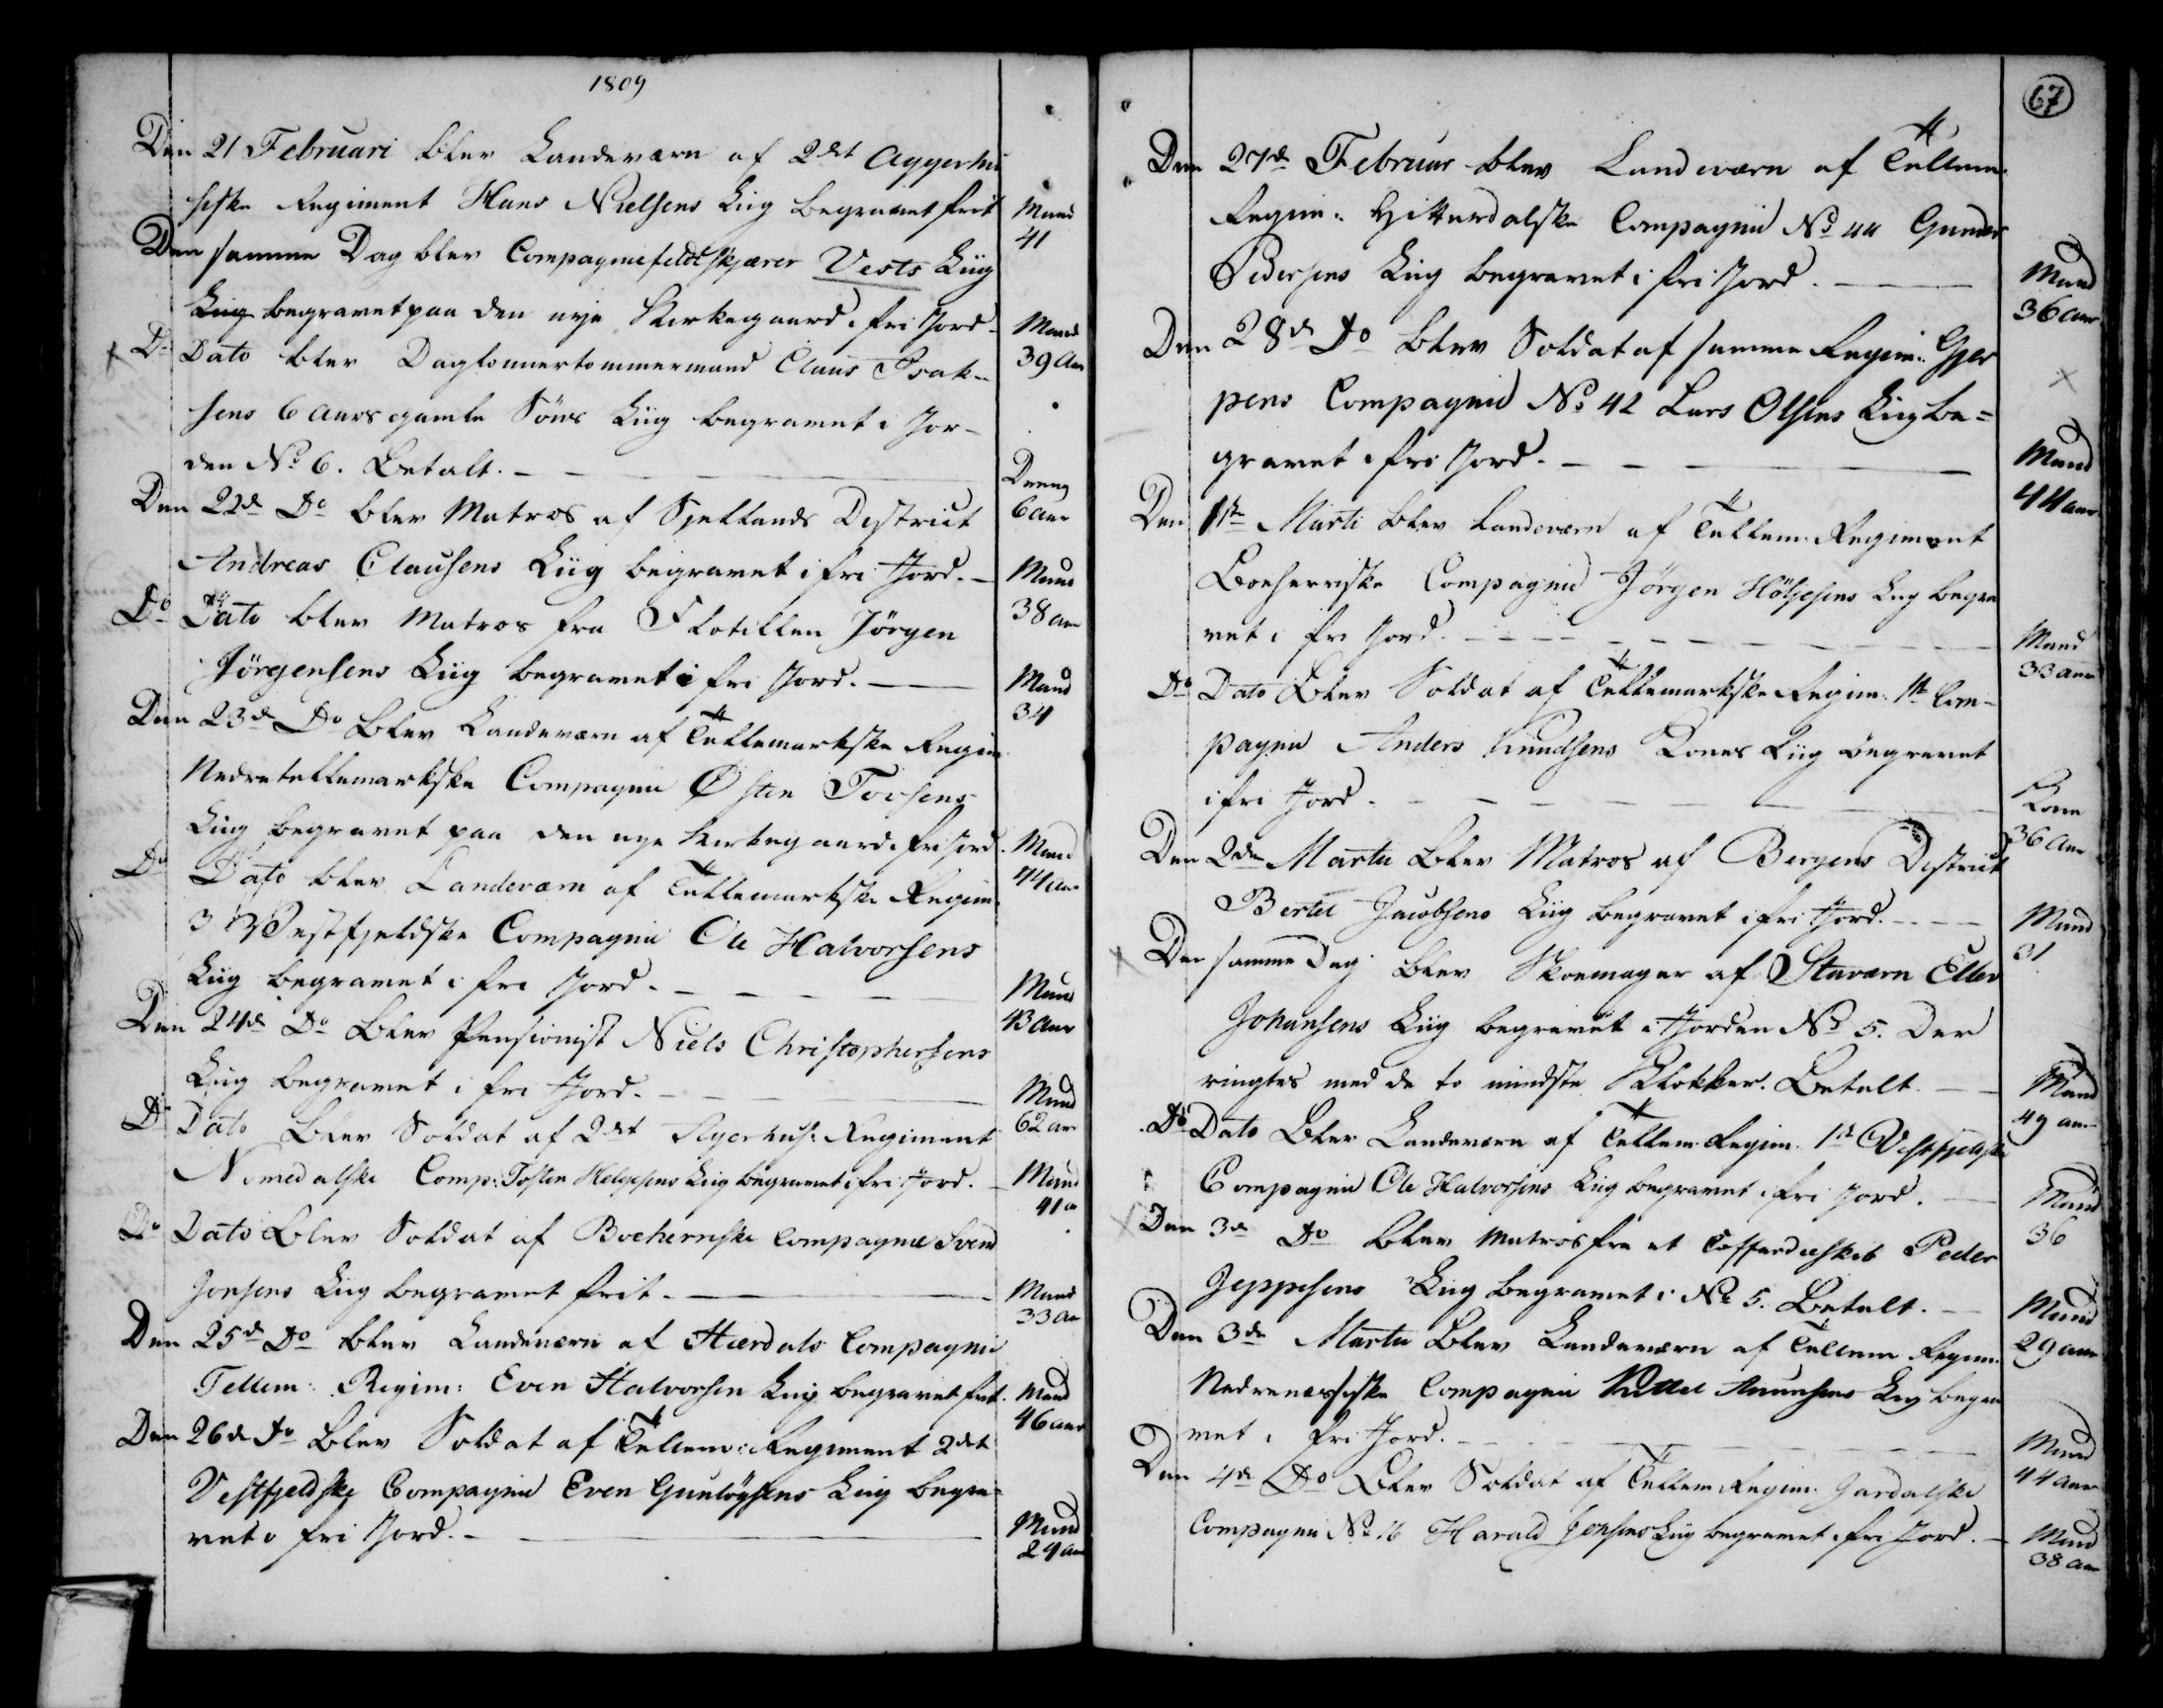 1809
Den 21 Februari blev Landeværn af 2det Aggershu
siske Regiment Hans Nielsens Liig begravet frit Mand 41
Den samme Dag blev Compagniefeldtskjærer Vests Liig
Liig begravet paa den nye Kirkegaard i fri Jord Mand 39 Aar
Do Dato blev Daglønnertømmermand Claus Isak-
sens 6 Aars gamle Søns Liig begravet i Jor-
den No 6. Betalt. Dreng 6 aar
Den 22de Do blev Matros af Sjellands District
Andreas Clausens Liig begravet i fri Jord. Mand 38 aar
Do Dato blev Matros fra Flotillen Jörgen
Jörgensens Liig begravet i fri Jord. Mand 34
Den 23de Do blev Landeværn af Tellemarkske Regim
Nedretellemarkske Compagnie Østen Torsens
Liig begravet paa den nye Kirkegaard i fri Jord. Mand 44 aar
Do Dato blev Landeværn af Tellemarkske Regim.
3 Vestfjeldske Compagnie Ole Halvorsens
Liig begravet i fri Jord. Mand 43 Aar
Den 24de Do blev Pensionist Niels Christophersens
Liig begravet i fri Jord. Mand 62 aar
Do Dato blev Soldat af 2det Agerhus: Regiment
Nomedalske Comp: Tosten Helgesens Liig begravet i fri Jord. Mand 41 a
Do Dato blev Soldat af Boehernske Compagnie Svend
Jonsens Liig begravet frit. Mand 33 Aar
Den 25de Do blev Landeværn af Hierdals Compagnie
Tellem: Regim: Even Halvorsen Liig begravet frit. Mand 46 aar
Den 26de Do blev Soldat af Tellem: Regiment 2det
Vestfjeldske Compagnie Even Gunløgsens Liig begra-
vet i fri Jord. Mand 24 aar
67
Den 27de Februar blev Landeværn af Tellem.
Regim: Hitterdalske Compagnie No 44 Gunder
Pedersens Liig begravet i fri Jord. Mand 36 aar
Den 28de Do blev Soldat af samme Regim: Gjer
pens Compagnie No 42 Lars Olsens Liig be=
gravet i fri Jord. Mand 44 aar
Den 1ste Marti blev Landeværn af Tellem. Regiment
Boeherrske Compagnie Jörgen Höljesens Liig begra
vet i fri Jord. Mand 33 aar
Do Dato blev Soldat af Tellemarkske Regim. 1ste Com-
pagnie Anders Knudsens Kones Liig begravet
i fri Jord. Kone 36 Aar
Den 2den Martii blev Matros af Bergens District
Bertel Jacobsens Liig begravet i fri Jord. Mand 31
Den samme Dag blev Skoemager af Staværn Ellev
Johansens Liig begravet i Jorden No 5. Der
ringtes med de to mindste Klokker. Betalt. Mand 49 aar
Do Dato blev Landeværn af Tellem. Regim. 1ste Vestfjeldske
Compagnie Ole Halvorsens Liig begravet i fri Jord. Mand 36
Den 3de Do blev Matros fra et Coffardieskib Peder
Jeppesens Liig begravet i No 5. Betalt. Mand 29 aar
Den 3de Martii blev Landeværn af Tellem Regim.
Nedrenæssiske Compagnie Kittel Aanonsens Liig begra
vet i fri Jord. Mand 44 aar
Den 4de Do blev Soldat af Tellem. Regim. Jardalske
Compagnie No 16 Harald Jensens Liig begravet i fri Jord. Mand 38 aar